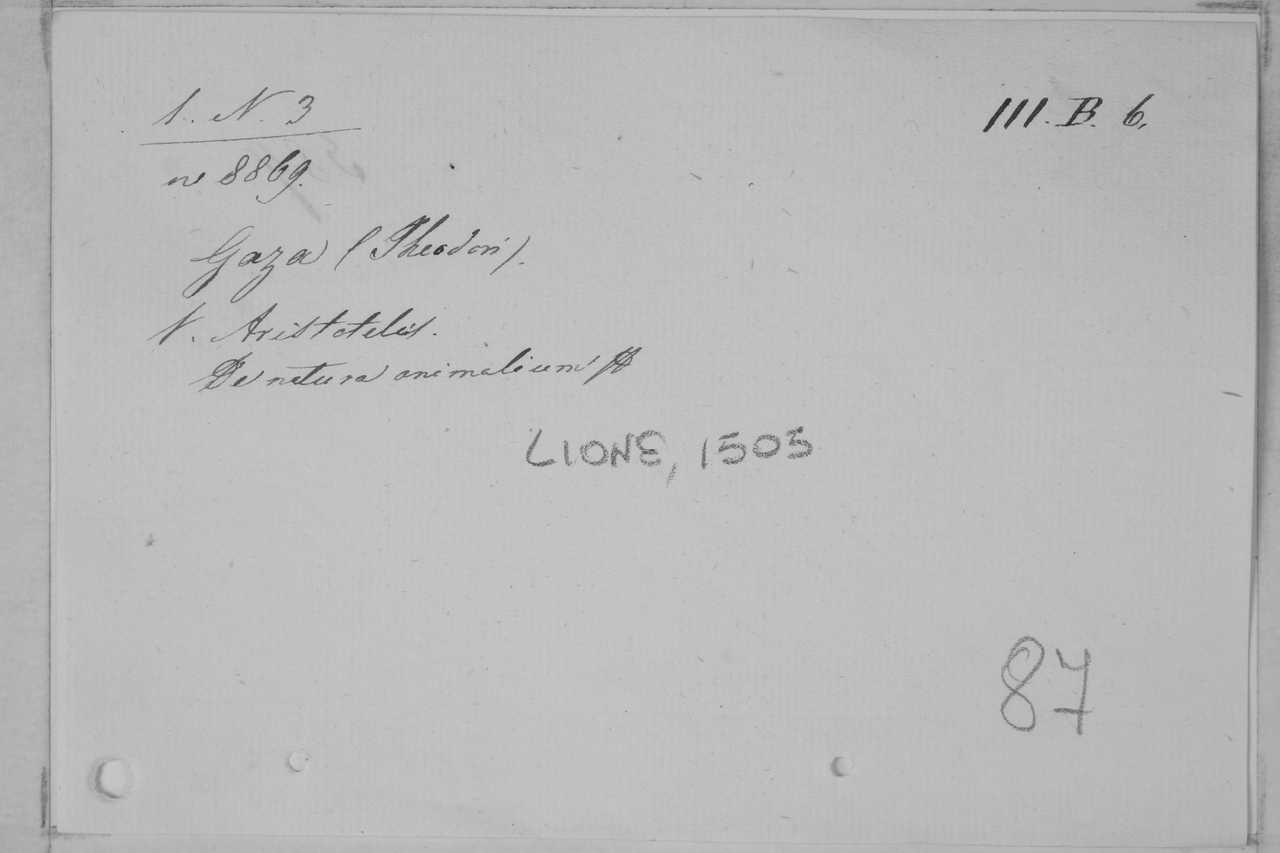 1. N. 3
III. B. 6.
nº 8869.
Gaza (Theodori).
V. Aristotelis.
De natura animalium
LIONE, 1505
87